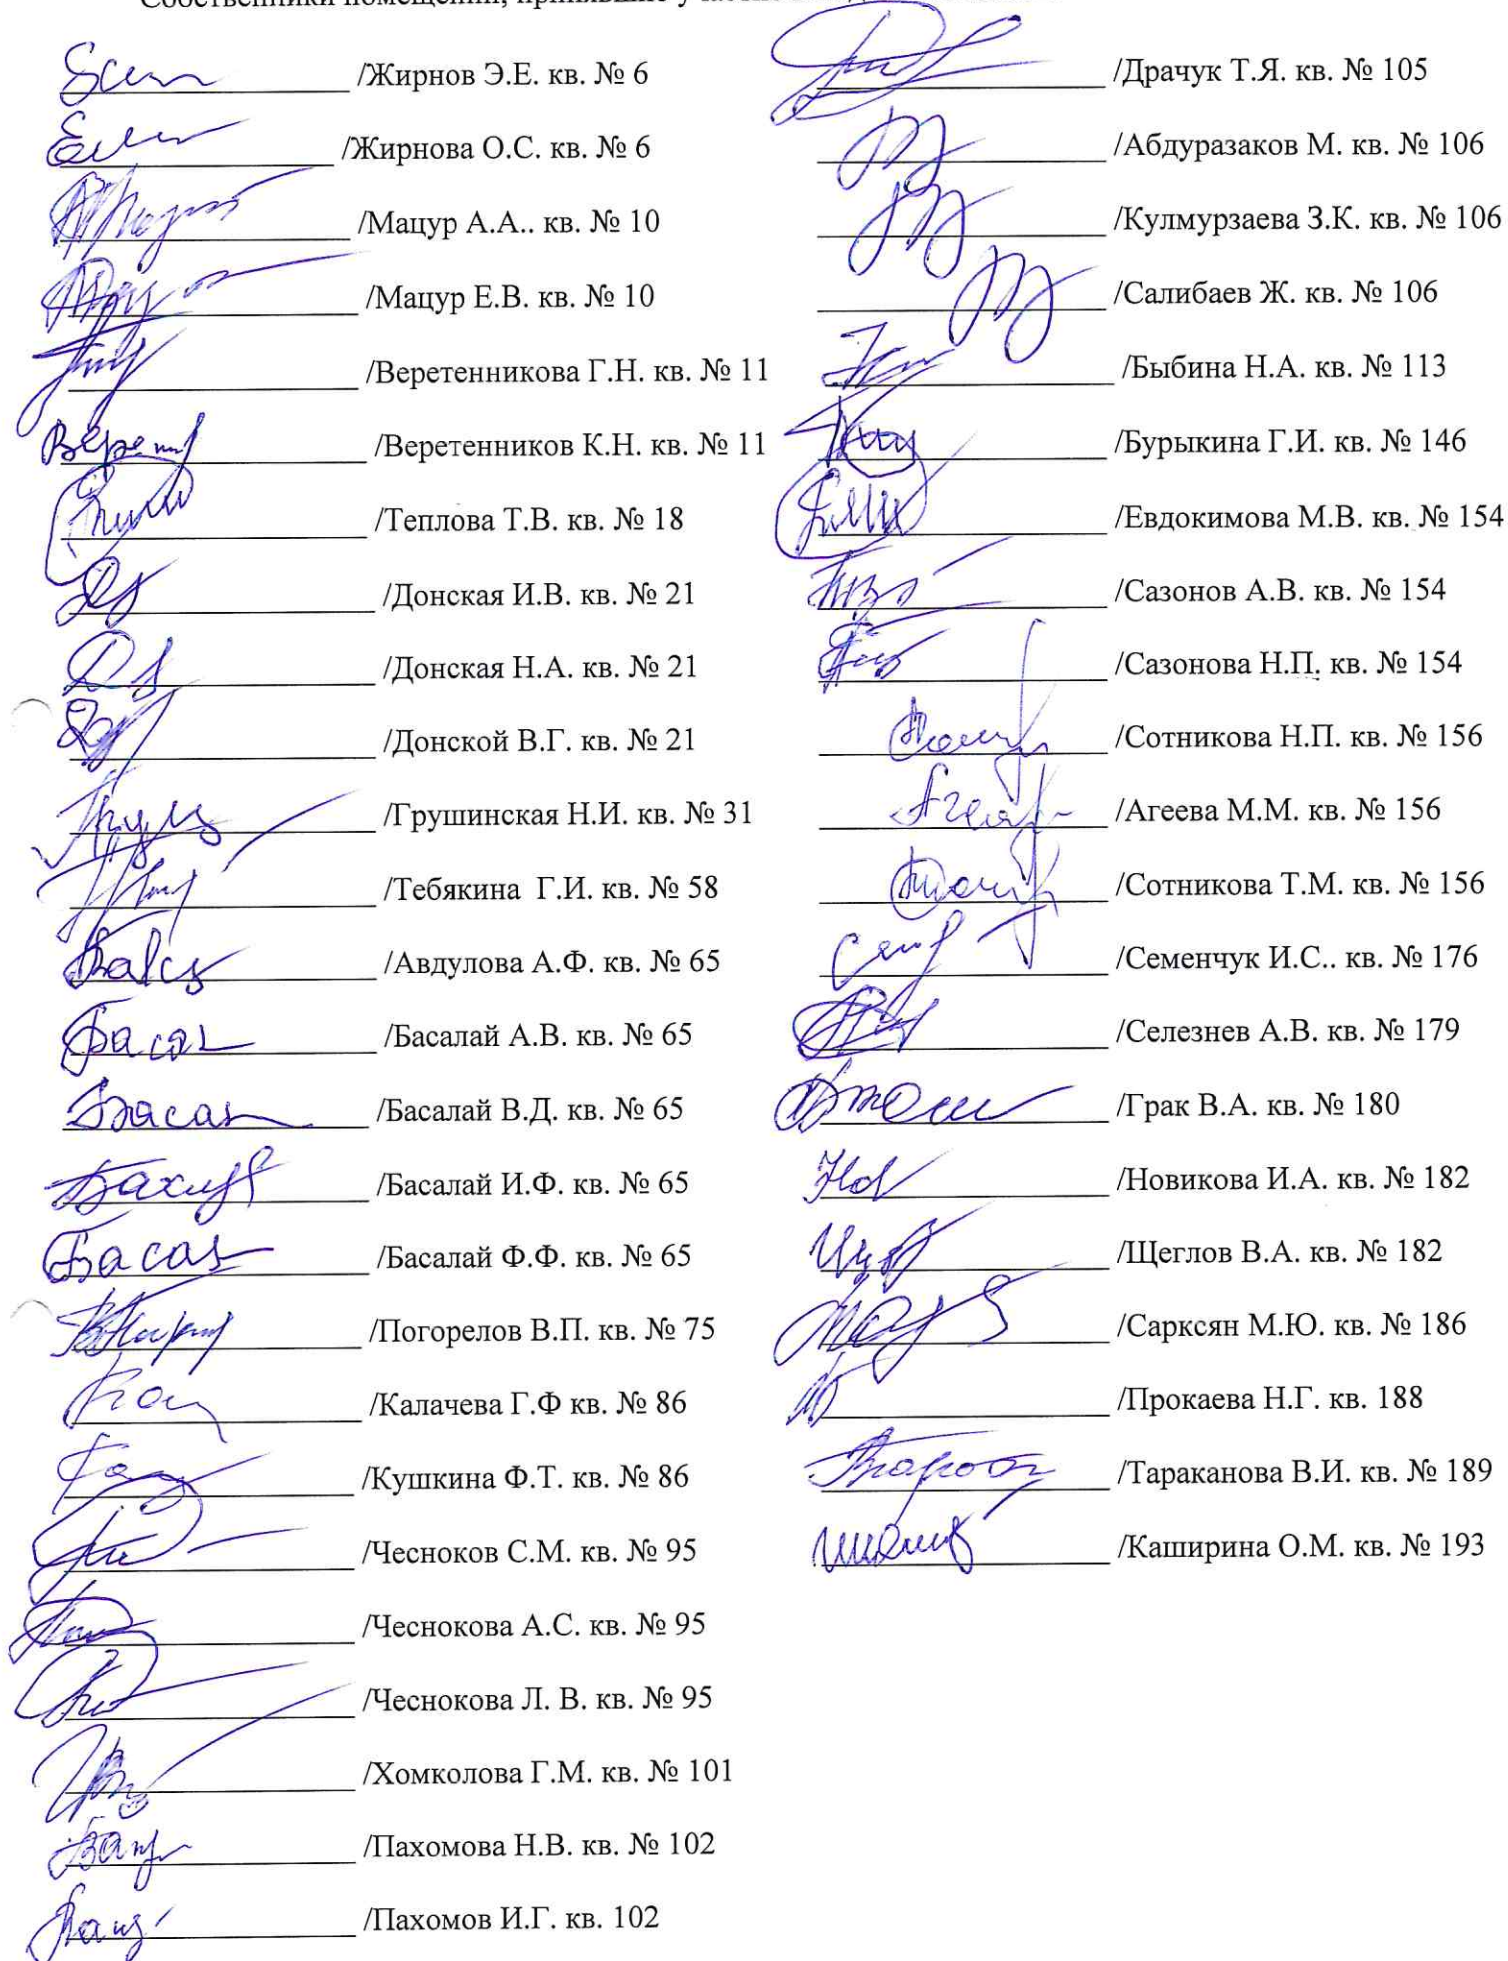 Собственники помещений, принявшие участие
/Жирнов Э.Е. кв. № 6
/Жирнова О.С. кв. № 6
/Мацур А.А.. кв. № 10
/Мацур Е.В. кв. № 10
/Веретенникова Г.Н. кв. № 11
/Веретенников К.Н. кв. № 11
/Теплова Т.В. кв. № 18
/Донская И.В. кв. № 21
/Донская Н.А. кв. № 21
/Донской В.Г. кв. № 21
/Грушинская Н.И. кв. № 31
/Тебякина Г.И. кв. № 58
/Авдулова А.Ф. кв. № 65
/Басалай А.В. кв. № 65
/Басалай В.Д. кв. № 65
/Басалай И.Ф. кв. № 65
/Басалай Ф.Ф. кв. № 65
/Погорелов В.П. кв. № 75
/Калачева Г.Ф кв. № 86
/Кушкина Ф.Т. кв. № 86
/Чесноков С.М. кв. № 95
/Чеснокова А.С. кв. № 95
/Чеснокова Л. В. кв. № 95
/Хомколова Г.М. кв. № 101
/Пахомова Н.В. кв. № 102
/Пахомов И.Г. кв. 102
/Драчук Т.Я. кв. № 105
/Абдуразаков М. кв. № 106
/Кулмурзаева З.К. кв. № 106
/Салибаев Ж. кв. № 106
/Быбина Н.А. кв. № 113
/Бурыкина Г.И. кв. № 146
/Евдокимова М.В. кв. № 154
/Сазонов А.В. кв. № 154
/Сазонова Н.П. кв. № 154
/Сотникова Н.П. кв. № 156
/Агеева М.М. кв. № 156
/Сотникова Т.М. кв. № 156
/Семенчук И.С.. кв. № 176
/Селезнев А.В. кв. № 179
/Грак В.А. кв. № 180
/Новикова И.А. кв. № 182
/Щеглов В.А. кв. № 182
/Сарксян М.Ю. кв. № 186
/Прокаева Н.Г. кв. 188
/Тараканова В.И. кв. № 189
/Каширина О.М. кв. № 193